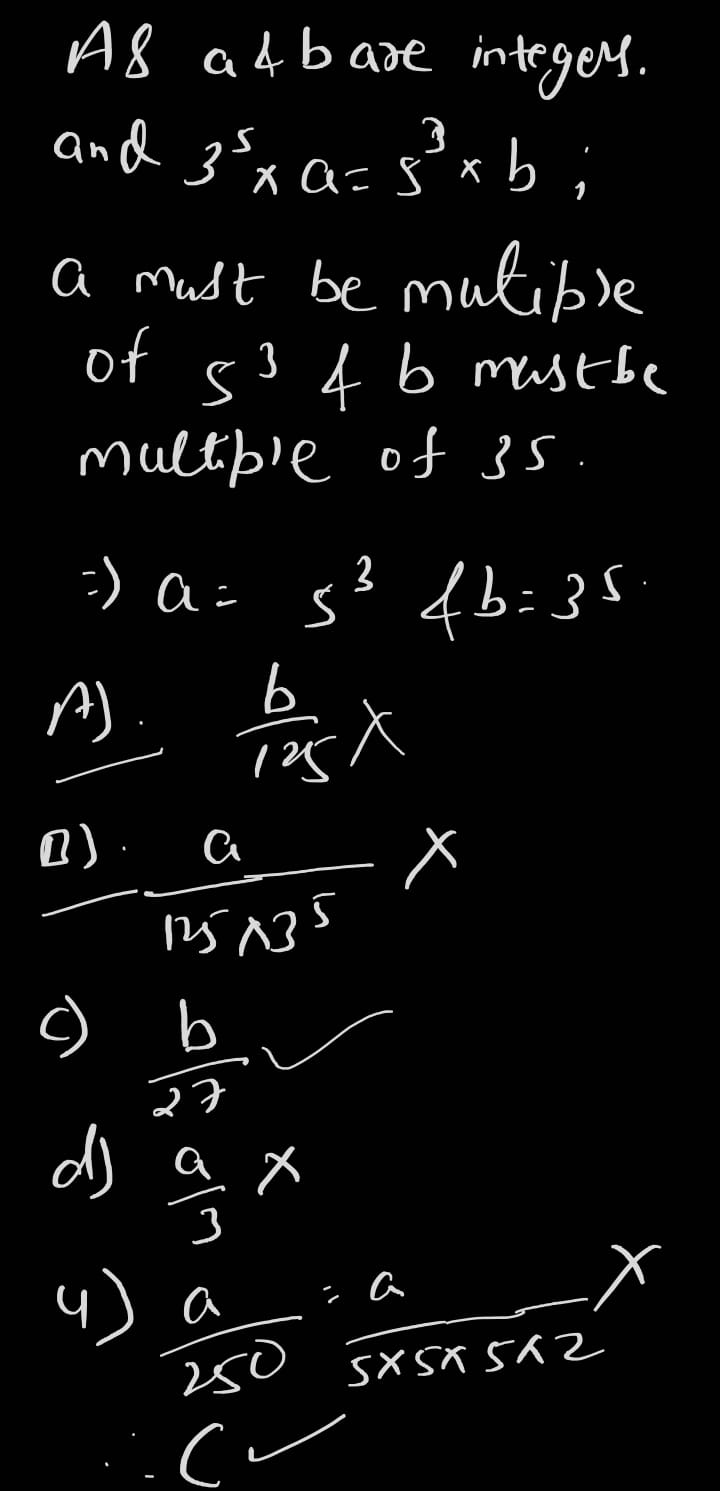 As a & b are integers.
and 3⁵ x a = 5³ x b ;
a must be mutiple
of 5³ & b must be
multiple of 35.
=) a = 5³ & b = 35.
A). b/125 X
B). a/125 x 3⁵ X
c) b/27 ✓
d) a/3 X
4) a/250 = a/5x5x5x2 X
∴ C ✓